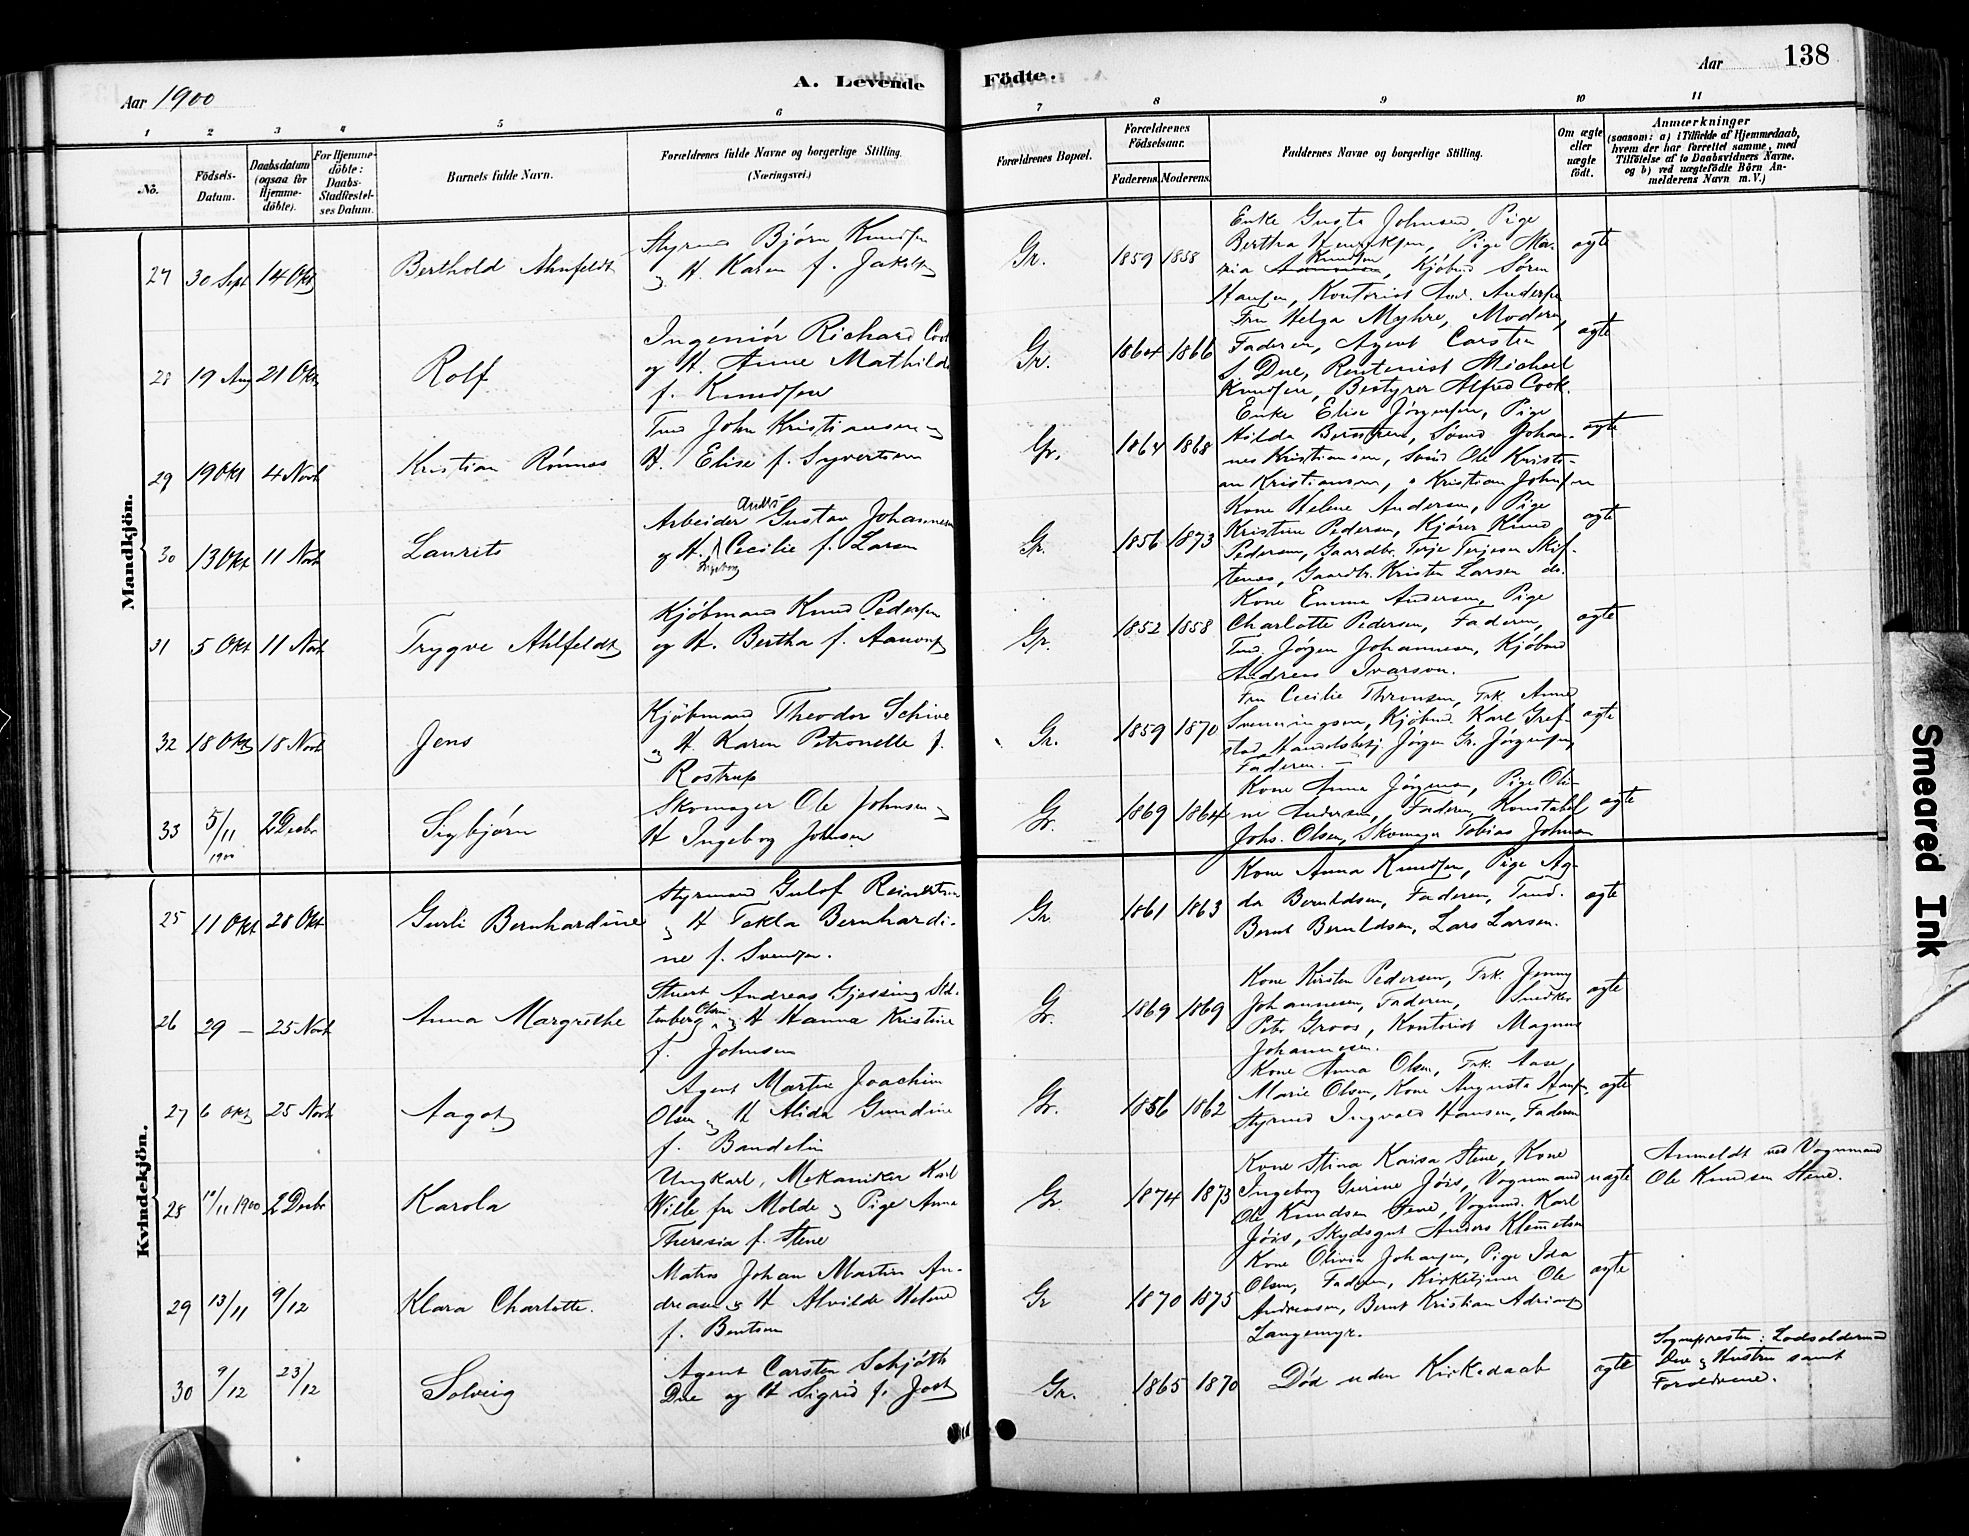 Aar 1900
A. Levende
Födte.
Aar
138
1
2
3
4
5
6
7
8
9
10
11
No.
Födsels-
Datum.
Daabsdatum
(ogsaa for
Hjemme-
döbte).
For Hjemme-
döbte:
Daabs-
Stadfæstel-
ses Datum.
Barnets fulde Navn.
Forældrenes fulde Navne og borgerlige Stilling.
(Næringsvei.)
Forældrenes Bopæl.
Forældrenes
Födselsaar.
Faderens.
Moderens.
Faddernes Navne og borgerlige Stilling.
Om ægte
eller
uægte
født.
Anmærkninger
(saasom: a) i Tilfælde af Hjemmedaab,
hvem der har forrettet samme, med
Tilföielse af to Daabsvidners Navne,
og b) ved uægtefödte Börn An-
melderens Navn m. V.)
Mandkjön.
27 30 Sept 14 Okt
Berthold Ahnfeldt
Styrmd Bjørn Knudsen
og H. Karen f. Jakobs
Gr.
1859 1858
Enke Gusta Johnsen, Pige
Bertha Henriksen, Pige Ma-
ria Knudsen, Kjøbmd Søren
Hansen, Kontorist And. Andersen
ægte
28 19 Aug 21 Okt
Rolf
Ingeniör Richard Cook
og H. Anne Mathilde
f. Knudsen
Gr.
1864 1866
Fru Helga Myhre, Moderen,
Faderen, Agent Carsten
S Due, Rentenist Michael
Knudsen, Bestyrer Alfred Cook.
ægte
29 19 Okt 4 Novb
Kristian Rönnes
Tmd John Kristiansen og
H. Elise f. Syvertsen
Gr.
1864 1868
Enke Elise Jörgensen, Pige
Hilda Berntsen, Sømd Johan-
nes Kristiansen, Sømd Ole Kristi-
an Kristiansen, Kristian Johnsen
ægte
30 13 Okt 11 Novb
Laurits
Arbeider Gustav Johannesen
og H. Ingeborg Cecilie f. Larsen
Gr.
1856 1873
Kone Helene Andersen, Pige
Kristine Pedersen, Kjører Knud
Pedersen, Gaardbr. Terje Terjesen Skif-
tenes, Gaardbr. Kristen Larsen do.
ægte
31 5 Okt 11 Novb
Trygve Ahlfeldt
Kjöbmand Knud Pedersen
og H. Bertha f. Aanons
Gr.
1852 1858
Kone Emma Andersen, Pige
Charlotte Pedersen, Faderen,
Tmd. Jörgen Johannesen, Kjöbmd
Andreas Ivarson.
ægte
32 18 Okt 18 Novb
Jens
Kjöbmand Theodor Schive
og H. Karen Petronelle f.
Rostrup
Gr.
1859 1870
Fru Cecilie Thronsen, Frk. Anne
Svenningsen, Kjöbmd. Karl Gref-
stad, Handelsbetj. Jörgen Gr. Jörgensen,
Faderen.
ægte
33 5/11 1900 2 Decbr
Sigbjörn
Skomager Ole Johnsen og
H Ingeborg Johnsen
Gr.
1869 1864
Kone Anna Jörgensen, Pige Oli-
ne Andersen, Faderen, Konstabel
Johs. Olsen, Skomager Tobias Johnsen
ægte
Kvindekjön.
25 11 Okt 28 Okt
Gurli Bernhardine
Styrmand Gulof Reinertsen
og H Tekla Bernhardi-
ne f. Svendsen.
Gr
1861 1863
Kone Anna Knudsen, Pige Ag-
da Berntdsen, Faderen, Tmd.
Bernt Berntdsen, Lars Larsen.
ægte
26 29 — 25 Novb
Anna Margrethe
Stuert Andreas Gjessing Stol-
tenberg Olsen og H Hanna Kristine
f. Johnsen
Gr.
1869 1869
Kone Kirsten Pedersen, Frk. Jenny
Johannesen, Faderen, Snedker
Peter Groos, Kontorist Magnus
Johannesen.
ægte
27 6 Okt 25 Novb
Aagot
Agent Martin Joachim
Olsen og H Alida Gundine
f. Bandelin
Gr.
1856 1862
Kone Anna Olsen, Frk. Aase
Marie Olsen, Kone Augusta Hansen,
Styrmd Ingvald Hansen, Faderen
ægte
28 10/11 1900 2 Decbr
Karola
Ungkarl, Mekaniker Karl
Wille fra Molde og Pige Anna
Theresia f. Stene
Gr.
1874 1873
Kone Stina Kaisa Stene, Kone
Ingeborg Gurine Jöis, Vognmand
Ole Knudsen Stene, Vognmd. Karl
Jöis, Skydsgut Anders Klemetsen
uægte
Anmeldt ved Vognmand
Ole Knudsen Stene.
29 13/11 9/12
Klara Charlotte.
Matros Johan Martin An-
dreasen og H Alvilde Helene
f. Bentsen
Gr
1870 1875
Kone Olivia Johansen, Pige Ida
Olsen, Faderen, Kirketjener Ole
Andreasen, Bernt Kristian Adrians
Langemyr.
ægte
30 9/12 23/12
Solveig
Agent Carsten Schjöth
Due og H Sigrid f. Jost
Gr.
1865 1870
Död uden Kirkedaab
ægte
Sognepresten: Lodsoldermd
Due og Hustru samt
Forældrene.
Smeared Ink